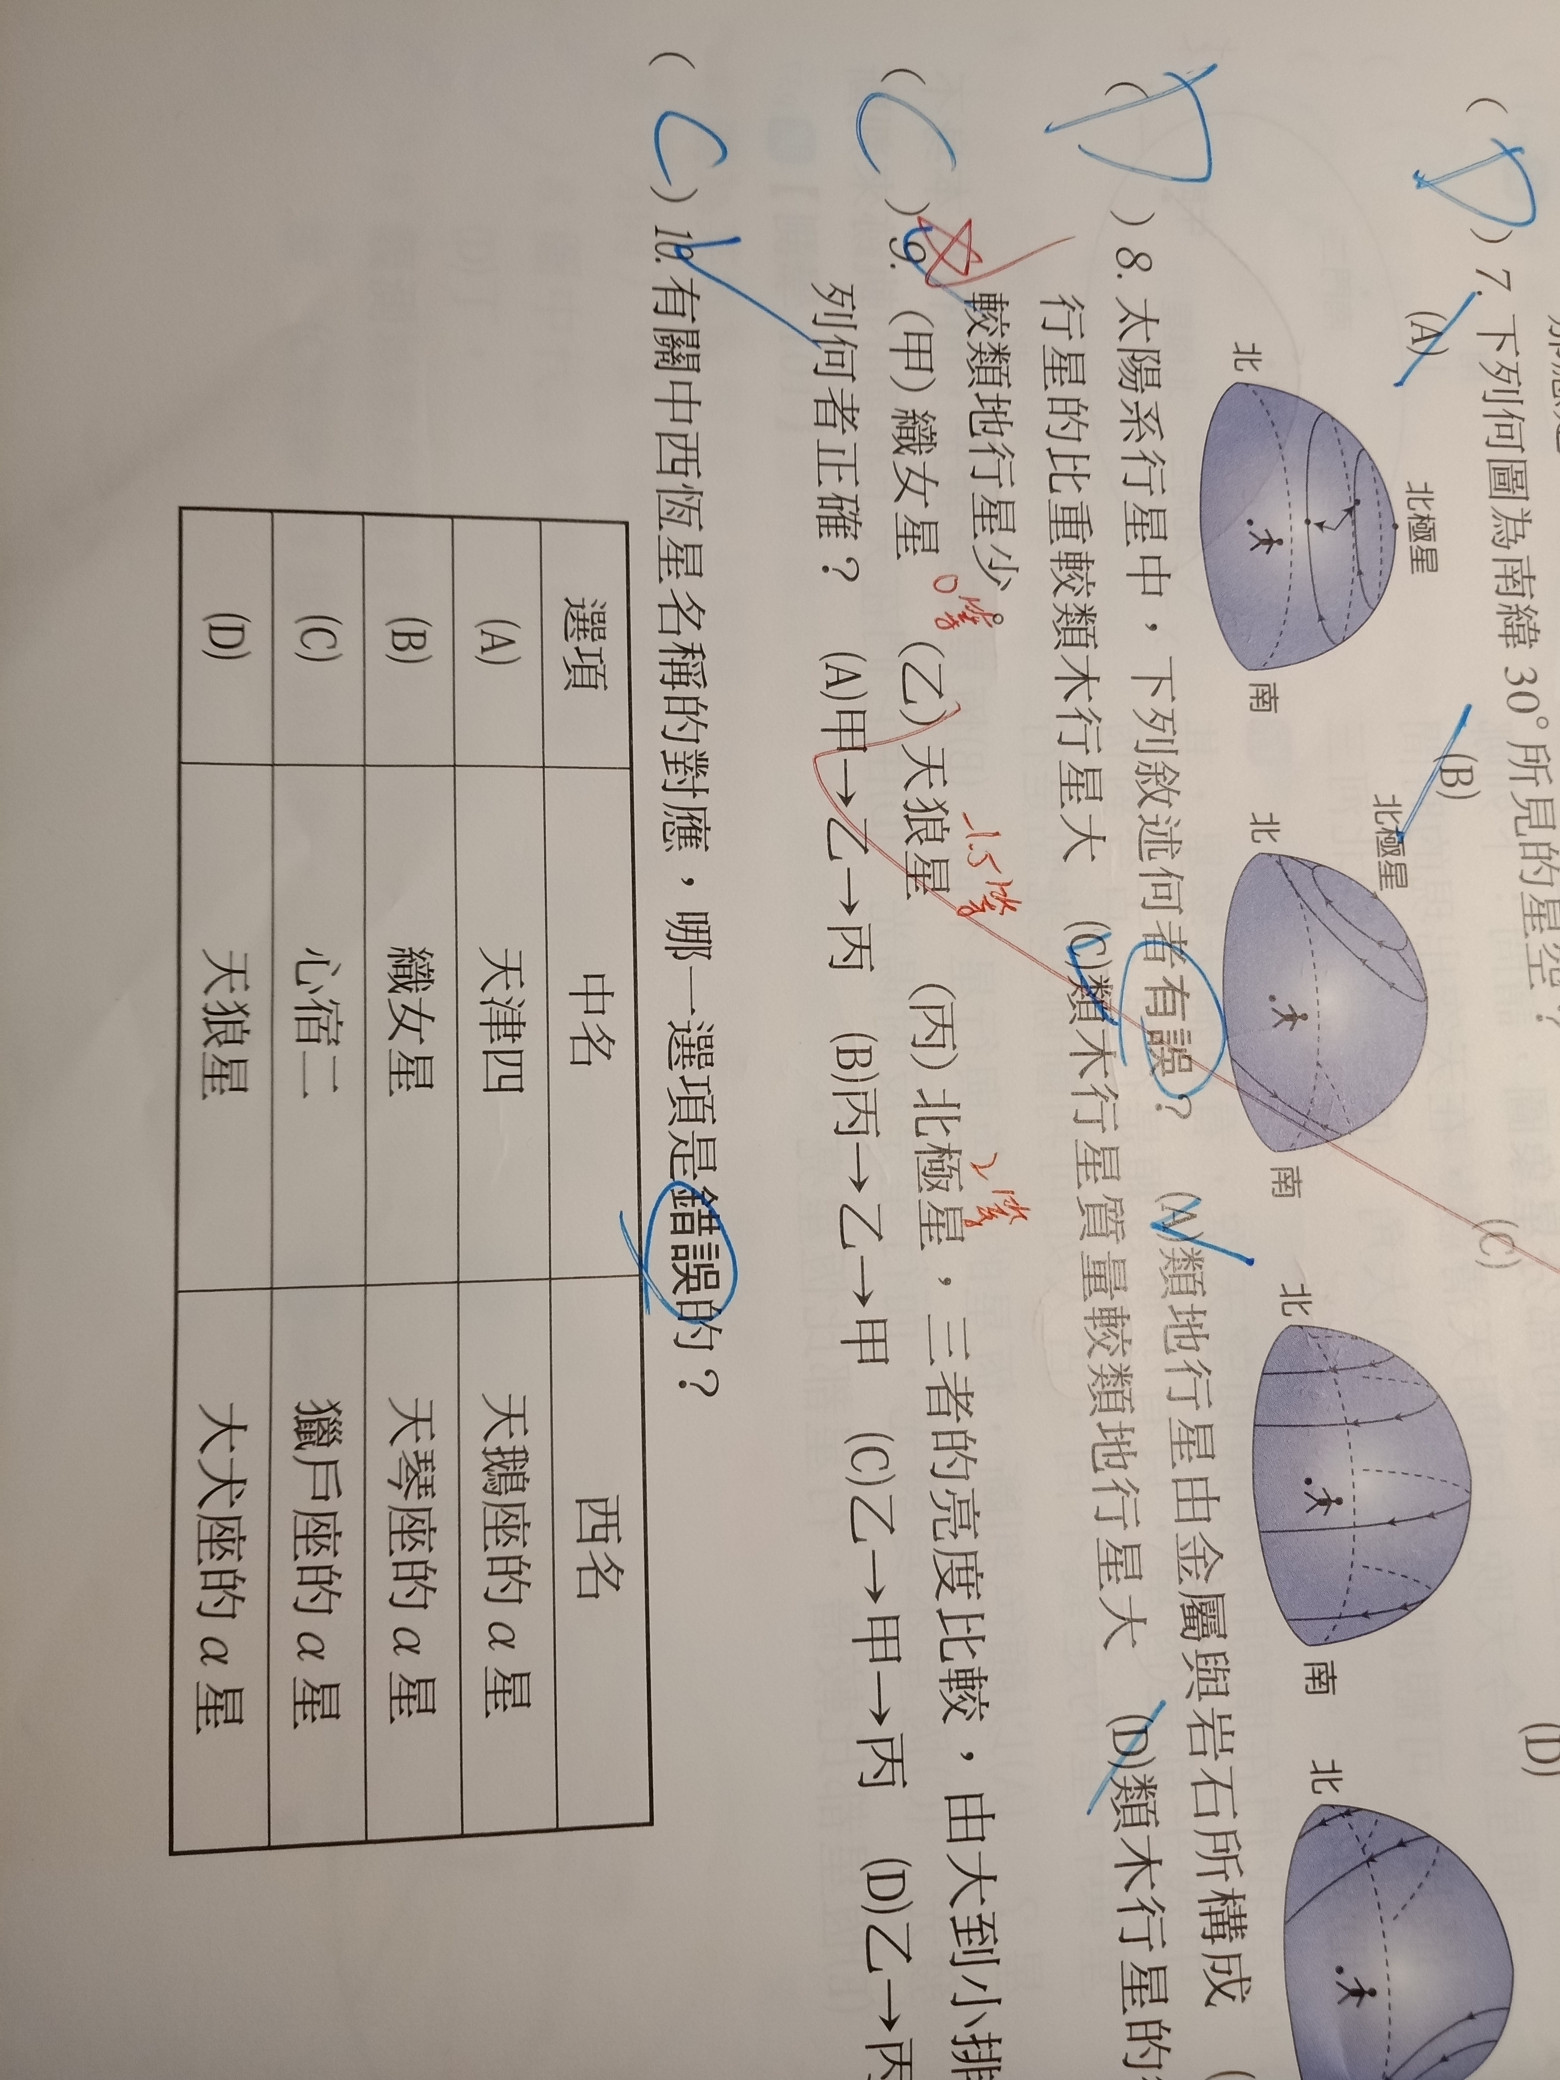 ( D ) 7. 下列何圖為南緯 30° 所見的星空？
(A) (B) (C) (D)
北極星 北極星
北 南 北 南 北 南 北
( D ) 8. 太陽系行星中，下列敘述何者有誤？ (A)類地行星由金屬與岩石所構成
行星的比重較類木行星大 (C)類木行星質量較類地行星大 (D)類木行星的
較類地行星少
0等 -1.5等 2等
( C ) 9. (甲) 織女星 (乙) 天狼星 (丙) 北極星，三者的亮度比較，由大到小排
列何者正確？ (A)甲→乙→丙 (B)丙→乙→甲 (C)乙→甲→丙 (D)乙→丙
( C ) 10. 有關中西恆星名稱的對應，哪一選項是錯誤的？
選項 中名 西名
(A) 天津四 天鵝座的 α 星
(B) 織女星 天琴座的 α 星
(C) 心宿二 獵戶座的 α 星
(D) 天狼星 大犬座的 α 星